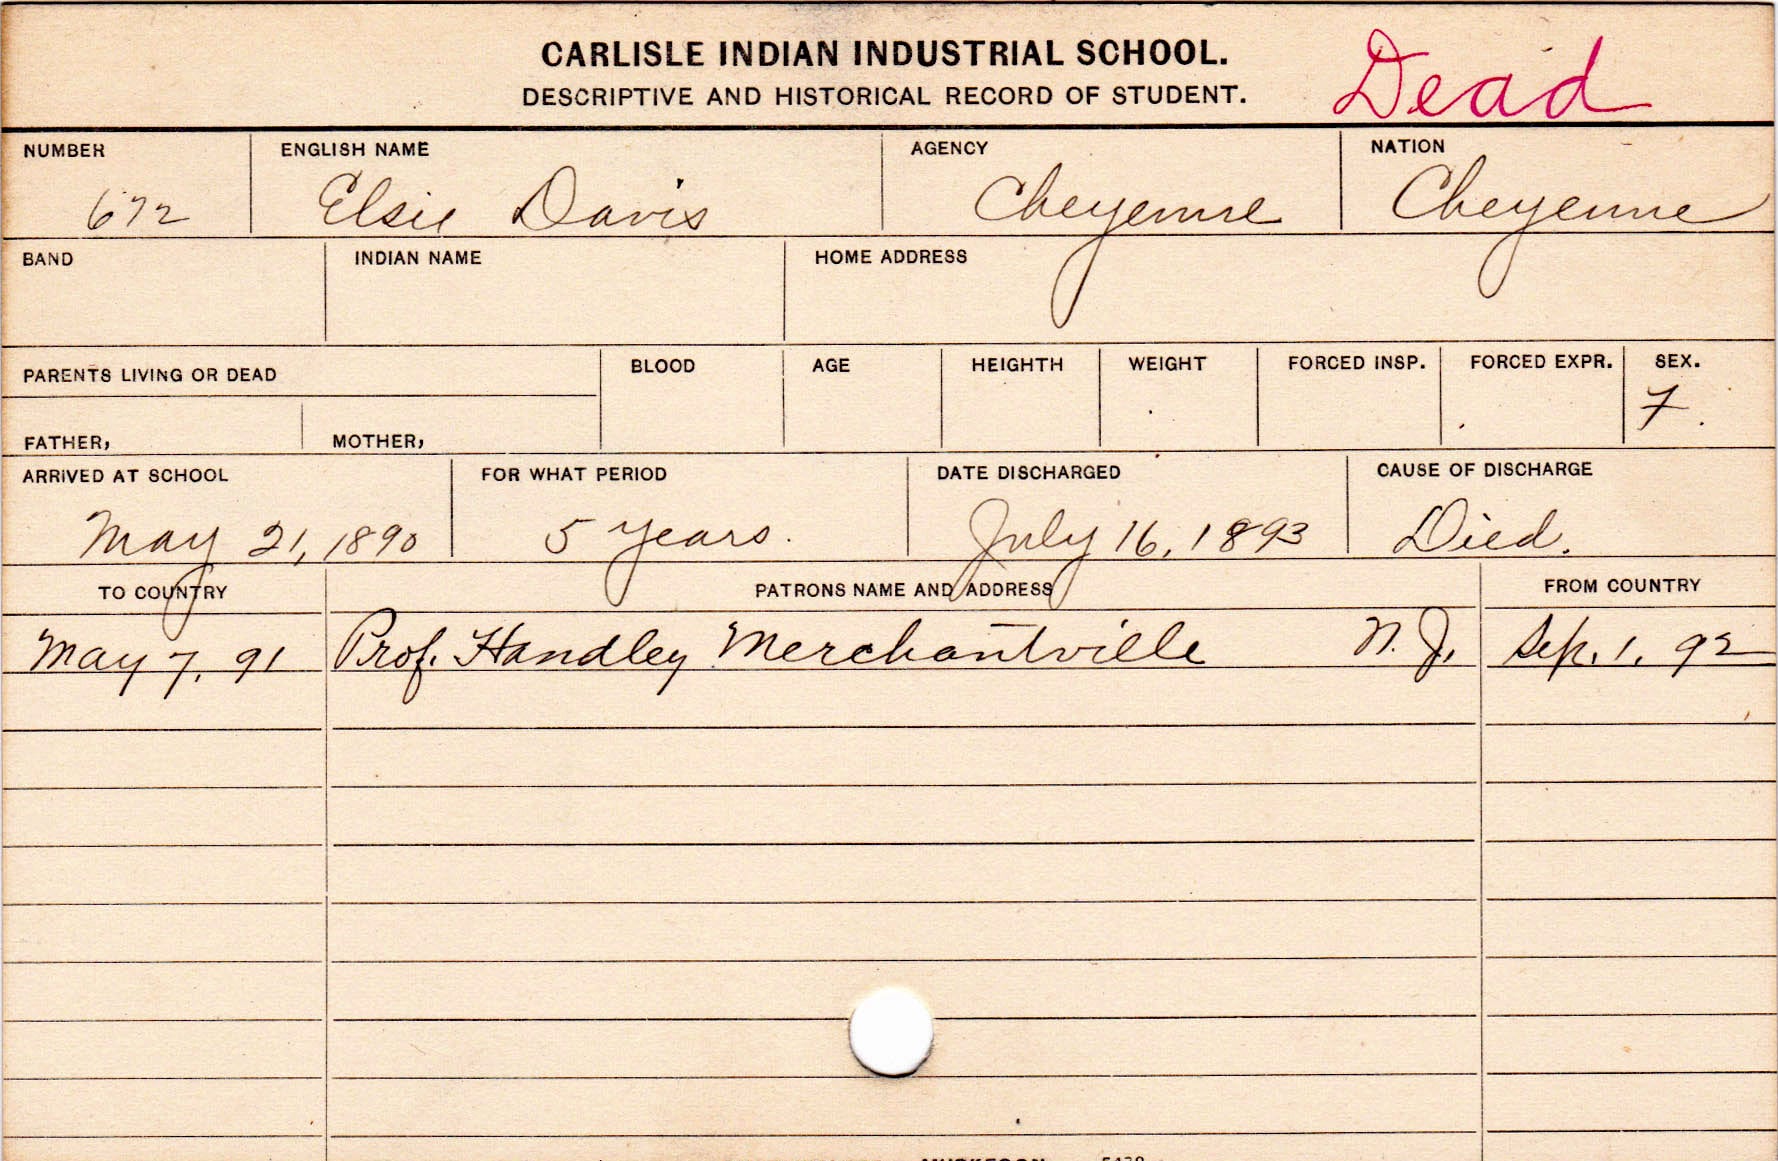 CARLISLE INDIAN INDUSTRIAL SCHOOL.
DESCRIPTIVE AND HISTORICAL RECORD OF STUDENT.
Dead
NUMBER ENGLISH NAME AGENCY NATION
672 Elsie Davis Cheyenne Cheyenne
BAND INDIAN NAME HOME ADDRESS
PARENTS LIVING OR DEAD BLOOD AGE HEIGHTH WEIGHT FORCED INSP. FORCED EXPR. SEX.
F.
FATHER, MOTHER,
ARRIVED AT SCHOOL FOR WHAT PERIOD DATE DISCHARGED CAUSE OF DISCHARGE
May 21, 1890 5 years. July 16, 1893 Died.
TO COUNTRY PATRONS NAME AND ADDRESS FROM COUNTRY
May 7, 91 Prof. Handley Merchantville N. J. Sep. 1, 92